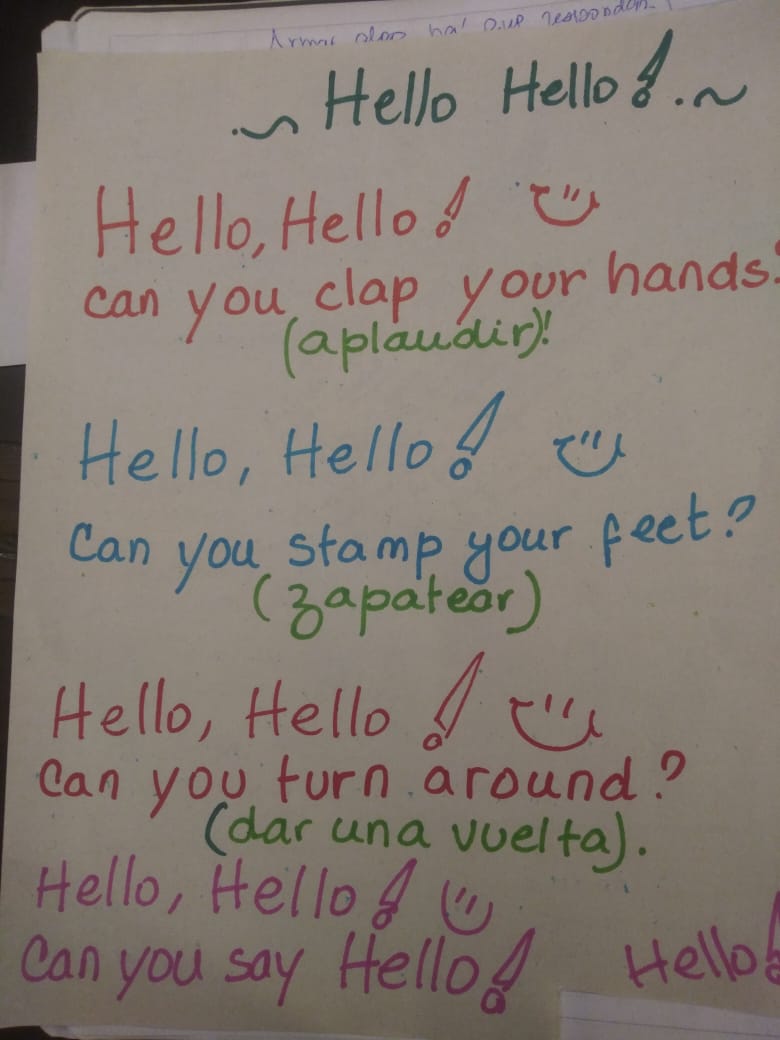 Hello Hello!
Hello, Hello!
can you clap your hands?
(aplaudir)!
Hello, Hello!
Can you stamp your feet?
(zapatear)
Hello, Hello!
Can you turn around?
(dar una vuelta).
Hello, Hello!
Can you say Hello! Hello!